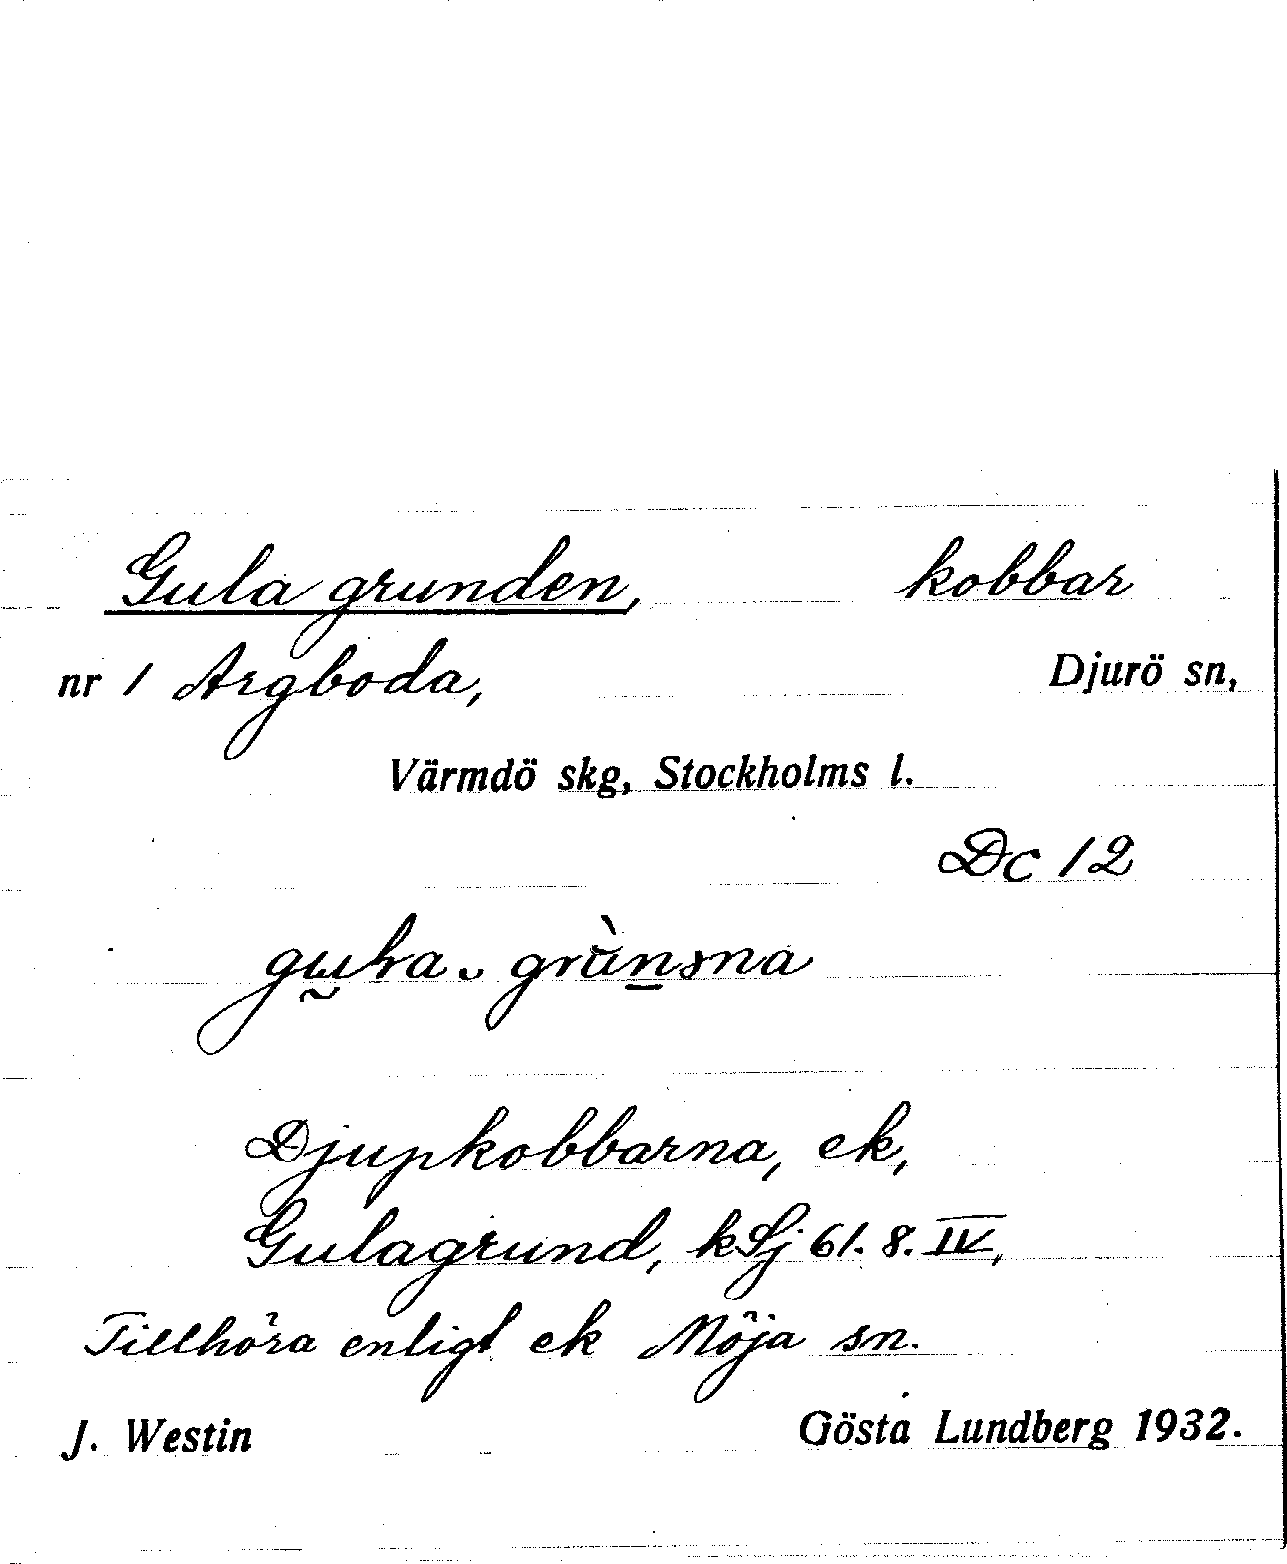 Gula grunden, kobbar
nr 1 Argboda, Djurö sn,
Värmdö skg, Stockholms l.
Dc 12
Djupkobbarna, ek,
Gulagrund, kSj 61. 8. IV,
Tillhöra enligt ek Möja sn.
J. Westin Gösta Lundberg 1932.